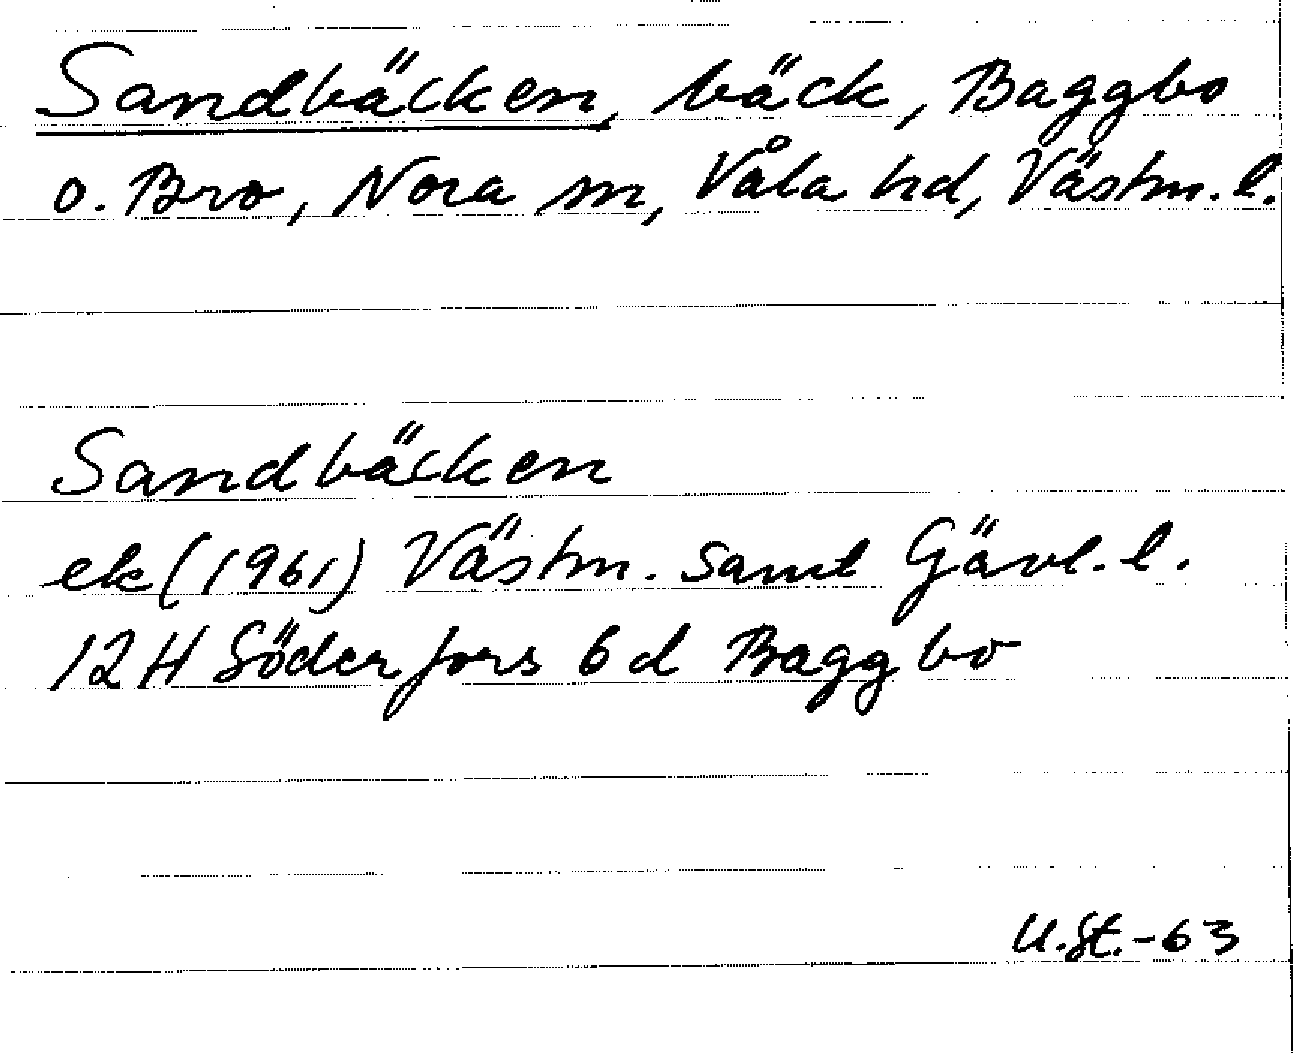 Sandbäcken, bäck, Baggbo
o. Bro, Nora sn, Våla hd, Västm. l.
Sandbäcken
ek (1961) Västm. samt Gävl. l.
12H Söderfors 6d Baggbo
U.St.-63